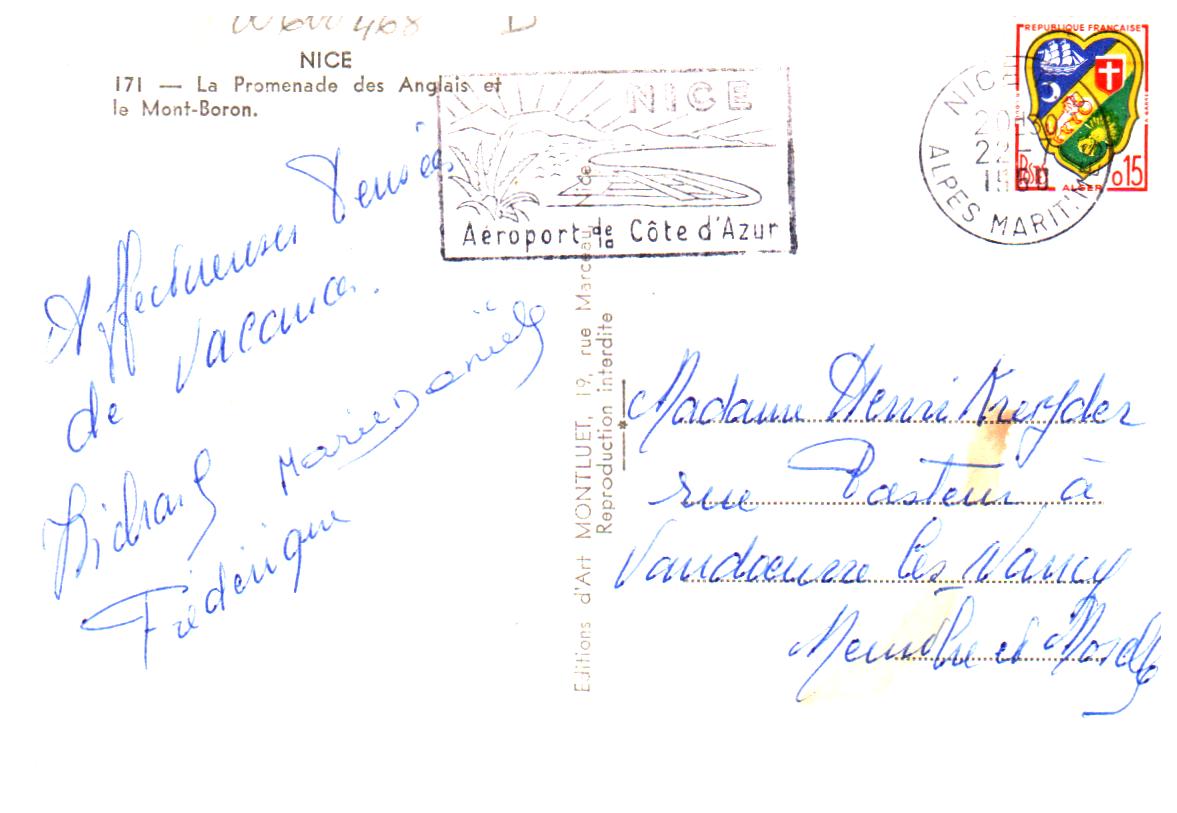 NICE
171 — La Promenade des Anglais et
le Mont-Boron.
NICE
Aéroport de la Côte d'Azur
REPUBLIQUE FRANÇAISE
POSTES
0,15
ALGER
NICE
22-
1960
ALPES MARIT'MES
Affectueuses Pensées
de vacances.
Richard Marie Danièle
Frédérique
Editions d'Art MONTLUET, 19, rue Marceau, Nice
Reproduction interdite
Madame Henri
rue Pasteur à
Vandoeuvre les Nancy
Meurthe et Moselle